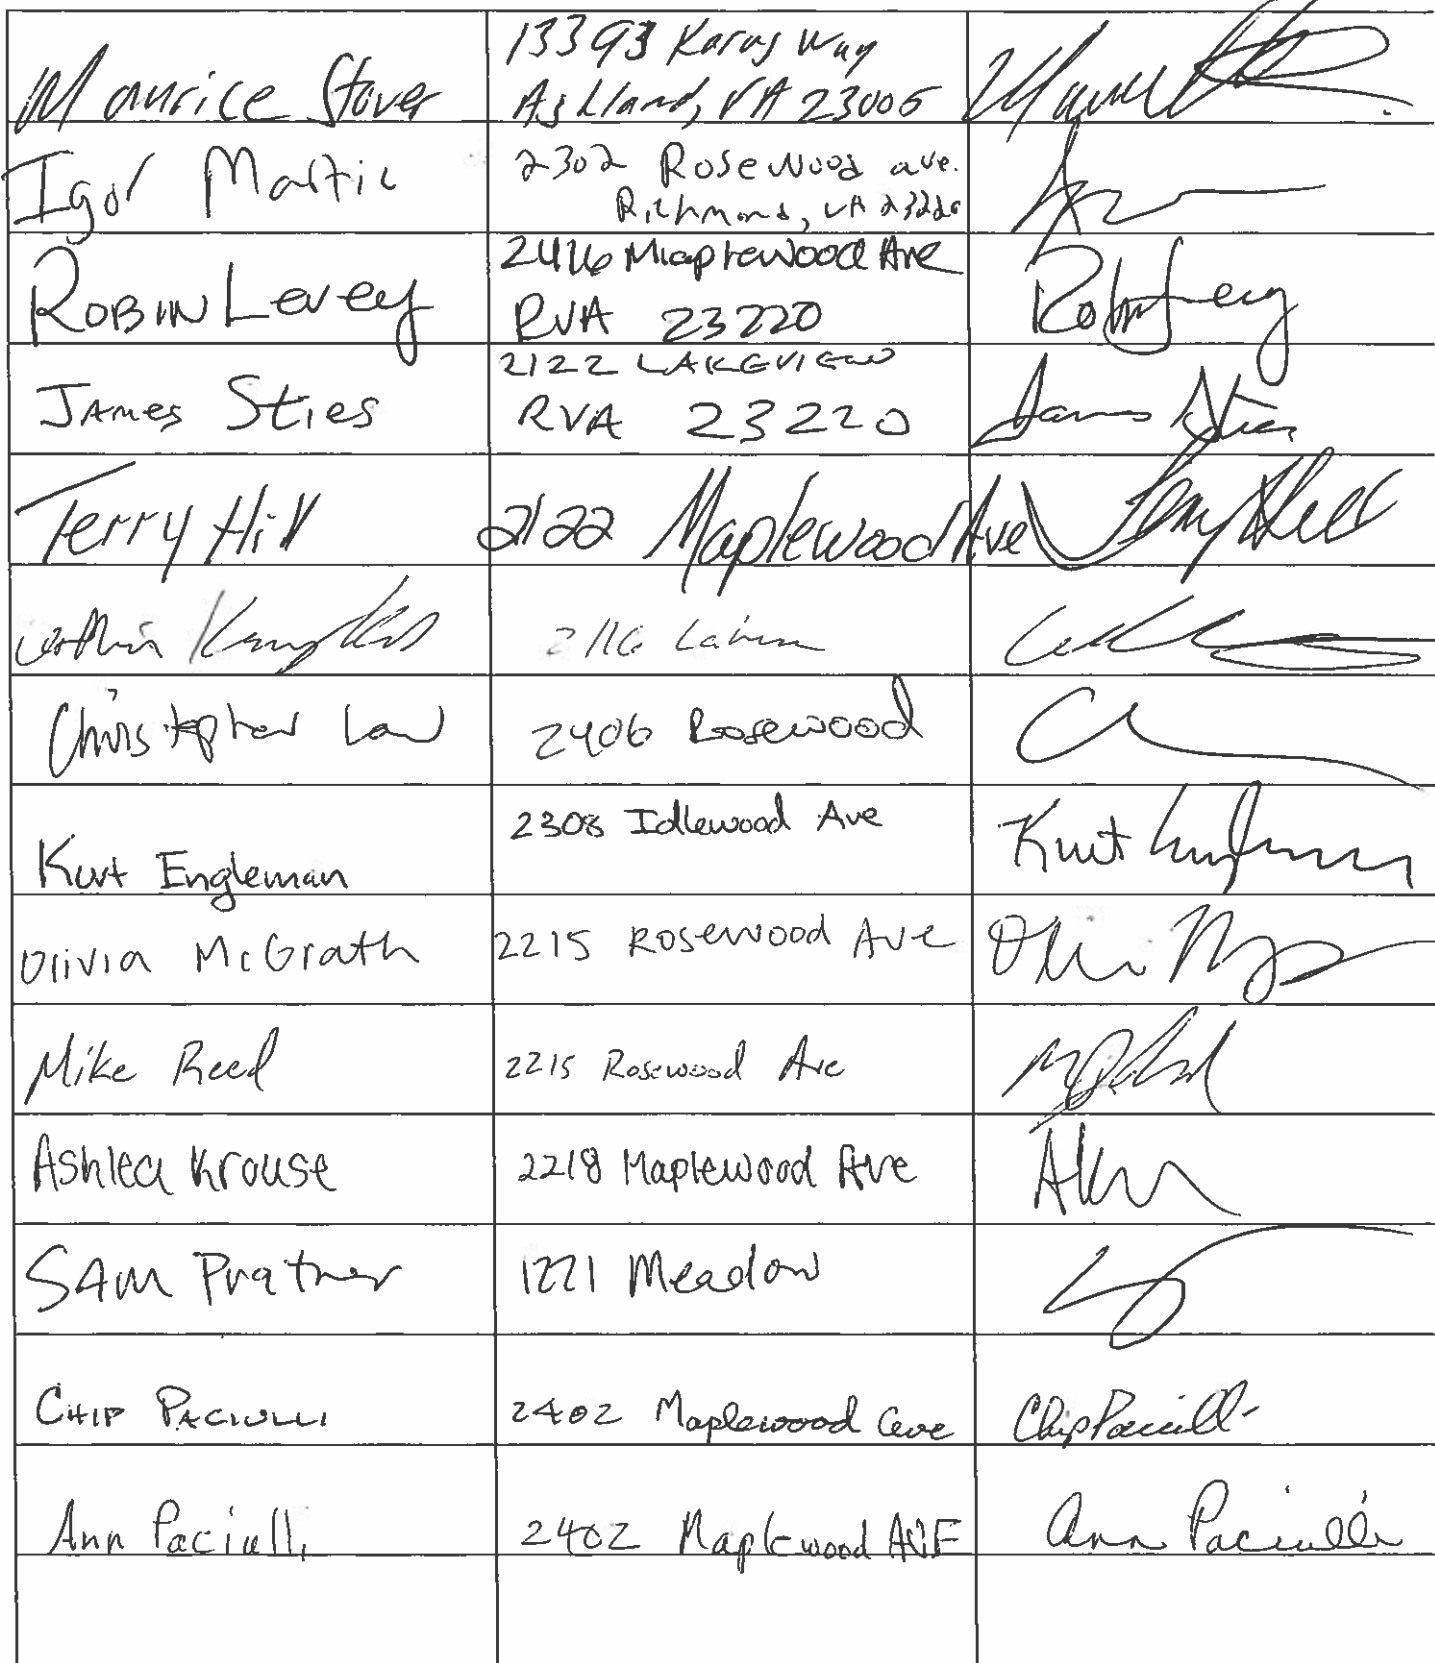 Maurice Stover
13393 Karas Way
Ashland, VA 23005
Igor Martic
2302 Rosewood ave.
Richmond, VA 23220
Robin Levey
2416 Maplewood Ave
RVA 23220
Robin Levey
James Sties
2122 LAKEVIEW
RVA 23220
James Sties
Terry Hill
2122 Maplewood Ave
Terry Hill
2116
Christopher Law
2406 Rosewood
Kurt Engleman
2308 Idlewood Ave
Kurt Engleman
Olivia McGrath
2215 Rosewood Ave
Mike Reed
2215 Rosewood Ave
Ashlea Krouse
2218 Maplewood Ave
SAM Prather
1221 Meadow
CHIP PACIULLI
2402 Maplewood Ave
Chip Paciulli
Ann Paciulli
2402 Maplewood AVE
Ann Paciulli